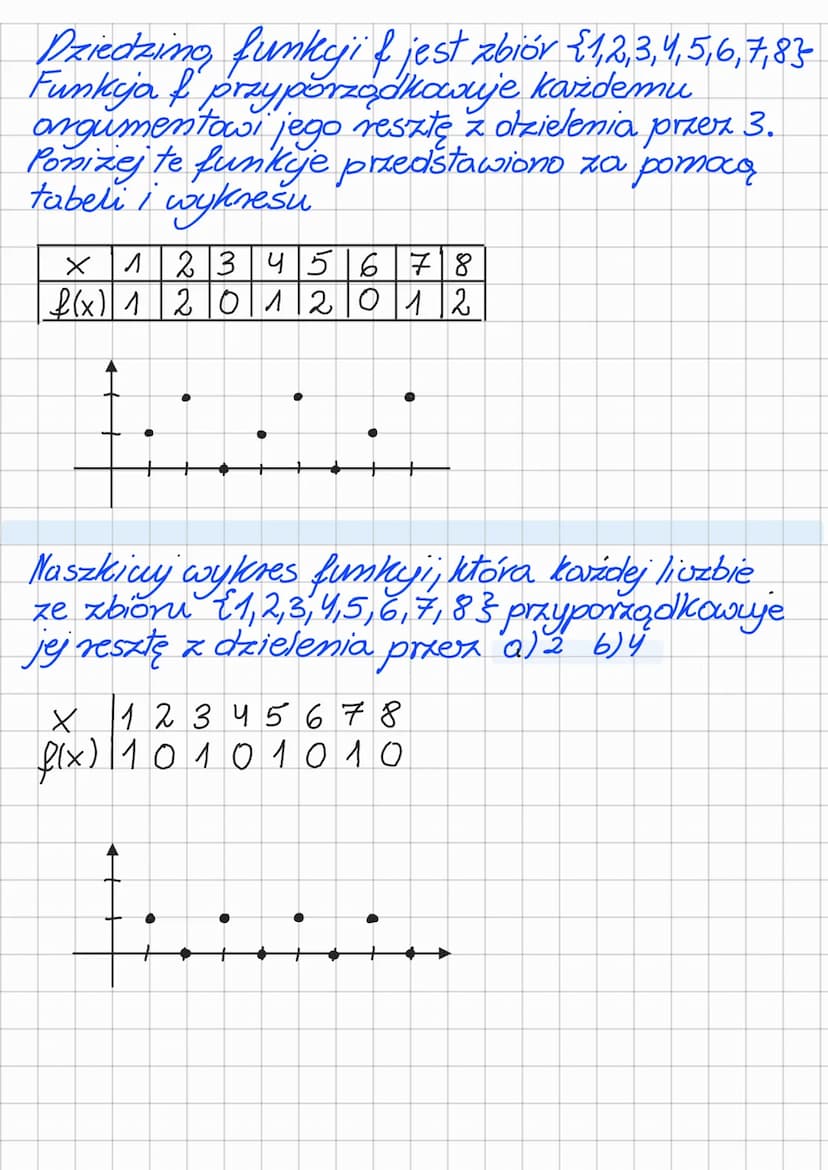 Dziedziną funkcji f jest zbiór {1,2,3,4,5,6,7,8}
Funkcja f przyporządkowuje każdemu
argumentowi jego resztę z dzielenia przez 3.
Poniżej te funkcje przedstawiono za pomocą
tabeli i wykresu
x 1 2 3 4 5 6 7 8
f(x) 1 2 0 1 2 0 1 2
Naszkicuj wykres funkcji, która każdej liczbie
ze zbioru {1,2,3,4,5,6,7,8} przyporządkowuje
jej resztę z dzielenia przez a) 2 b) 4
x 1 2 3 4 5 6 7 8
f(x) 1 0 1 0 1 0 1 0